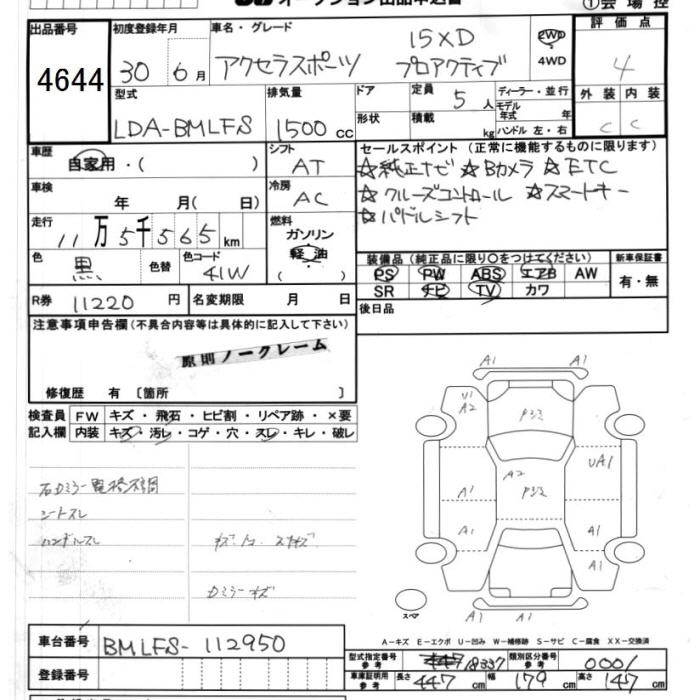 オークション出品申込書
①会場控
出品番号 4644
初度登録年月 30 6月
車名・グレード 15XD
アクセラスポーツ プロアクティブ
2WD
4WD
評価点 4
外装 内装
C C
型式 LDA-BMLFS
排気量 1500 cc
ドア
形状
定員 5人
積載 kg
ディーラー・並行
モデル年式 年
ハンドル 左・右
車歴 自家用・( )
シフト AT
セールスポイント (正常に機能するものに限ります)
☆純正ナビ ☆Bカメラ ☆ETC
☆クルーズコントロール ☆スマートキー
☆パドルシフト
車検 年 月( 日)
冷房 AC
走行 11万5千565km
燃料 ガソリン
軽油
色 黒 色替
色コード 41W
装備品 (純正品に限り○をつけてください)
PS PW ABS エアB AW
SR ナビ TV カワ
新車保証書
有・無
R券 11220円
名変期限 月 日
後日品
注意事項申告欄(不具合内容等は具体的に記入して下さい)
原則ノークレーム
修復歴 有 〔箇所 〕
検査員記入欄
FW キズ・飛石・ヒビ割・リペア跡・×要
内装 キズ・汚レ・コゲ・穴・スレ・キレ・破レ
シートスレ
ハンドルスレ
A1 A1
U1
A2
A2
UA1
A1
A1
A1
A1
A1 A1
スペア
A-キズ E-エクボ U-凹み W-補修跡 S-サビ C-腐食 XX-交換済
車台番号 BMLFS-112950
登録番号
型式指定番号 参考 18337
類別区分番号 参考 0001
車庫証明用 参考 長さ 447cm 幅 179cm 高さ 147cm